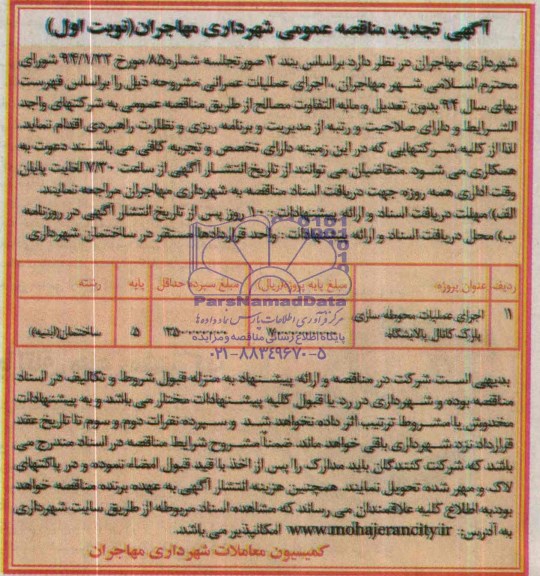 آگهی تجدید مناقصه عمومی شهرداری مهاجران(نوبت اول)
شهرداری مهاجران در نظر دارد براساس بند ۲ صورتجلسه شماره ۸۵ مورخ ۹۴/۱/۲۲ شورای
محترم اسلامی شهر مهاجران ، اجرای عملیات عمرانی مشروحه ذیل را براساس فهرست
بهای سال ۹۴ بدون تعدیل و مابه التفاوت مصالح از طریق مناقصه عمومی به شرکتهای واجد
الشرایط و دارای صلاحیت و رتبه از مدیریت و برنامه ریزی و نظارت راهبردی اقدام نماید.
لذا از کلیه شرکتهایی که در این زمینه دارای تخصص و تجربه کافی می باشند دعوت به
همکاری می شود .متقاضیان می توانند از تاریخ انتشار آگهی از ساعت ۷/۳۰ لغایت پایان
وقت اداری همه روزه جهت دریافت اسناد مناقصه به شهرداری مهاجران مراجعه نمایند.
الف) مهلت دریافت اسناد و ارائه پیشنهادات: ۱۰ روز پس از تاریخ انتشار آگهی در روزنامه
ب) محل دریافت اسناد و ارائه پیشنهادات: واحد قراردادها مستقر در ساختمان شهرداری
ردیف عنوان پروژه مبلغ پایه پروژه(ریال) مبلغ سپرده حداقل پایه رشته
۱۱ اجرای عملیات محوطه سازی ۵ ساختمان(ابنیه)
پارک کانال پالایشگاه
ParsNamadData
مرکز فرآوری اطلاعات پارس نماد داده ها
پایگاه اطلاع رسانی مناقصه و مزایده
۰۲۱-۸۸۳۴۹۶۷۰-۵
بدیهی است شرکت در مناقصه و ارائه پیشنهاد به منزله قبول شروط و تکالیف در اسناد
مناقصه بوده و شهرداری در رد یا قبول کلیه پیشنهادات مختار می باشد و به پیشنهادات
مخدوش یا مشروط ترتیب اثر داده نخواهد شد و سپرده نفرات دوم و سوم تا تاریخ عقد
قرارداد نزد شهرداری باقی خواهد ماند. ضمناً مشروح شرایط مناقصه در اسناد مندرج می
باشد که شرکت کنندگان باید مدارک را پس از اخذ با قید قبول امضاء نموده و در پاکتهای
لاک و مهر شده تحویل نمایند. همچنین هزینه انتشار آگهی به عهده برنده مناقصه خواهد
بود.به اطلاع کلیه علاقمندان می رساند که مشاهده اسناد مربوطه از طریق سایت شهرداری
به آدرس: www.mohajerancity.ir امکانپذیر می باشد.
کمیسیون معاملات شهرداری مهاجران